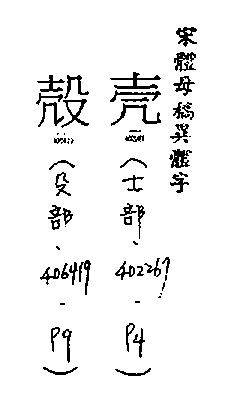 宋體母稿異體字
壳(士部、402267-P4)
殻(殳部、406419-P9)